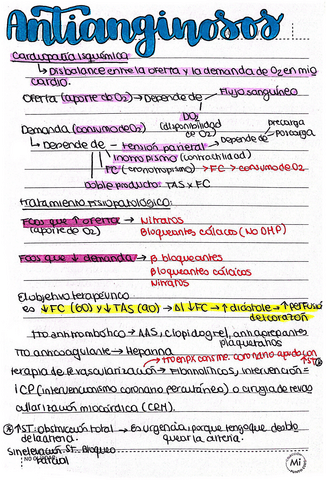 Antianginosos
Cardiopatía isquémica
↳ Disbalance entre la oferta y la demanda de O2 en mio
cardio.
Oferta (aporte de O2) → Depende de Flujo sanguíneo
DO2
(disponibilidad de O2)
Demanda (consumo de O2)
↳ Depende de - Tensión parietal → Depende de precarga
poscarga
Inotropismo (contractilidad)
FC (cronotropismo) > FC > consumo de O2
Doble producto: TAS x FC
Tratamiento fisiopatológico:
FCOS que ↑ oferta → Nitratos
(aporte de O2) Bloqueantes cálcicos (NO DHP)
FCOS que ↓ demanda → β bloqueantes
Bloqueantes cálcicos
Nitratos
El objetivo terapéutico:
es ↓FC (60) y ↓TAS (90) → Al ↓FC → ↑ diástole → ↑ perfusión
del corazón
TTO antitrombótico → AAS, clopidogrel, antiagregantes
plaquetarios
TTO anticoagulante → Heparina
coronario agudo con ↑ST
terapia de revascularización → Fibrinolíticos, intervención =
ICP (intervencionismo coronario percutáneo) o cirugía de revas
cularización miocárdica (CRM).
↑ST: obstrucción total → Es urgencia, porque tengo que desblo
de la arteria. quear la arteria.
Sin elevación ST: Bloqueo
parcial
Mi